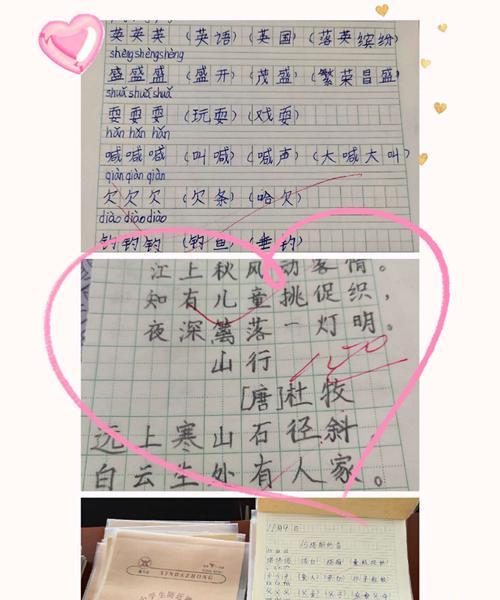 英英英（英语）（英国）（落英缤纷）
shèngshèngshèng
盛盛盛（盛开）（茂盛）（繁荣昌盛）
shuǎ shuǎ shuǎ
耍耍耍（玩耍）（戏耍）
hǎn hǎn hǎn
喊喊喊（叫喊）（喊声）（大喊大叫）
qiàn qiàn qiàn
欠欠欠（欠条）（哈欠）
diào diào diào
钓钓钓（钓鱼）（垂钓）
江上秋风动客情。
知有儿童挑促织，
夜深篱落一灯明。
山行
[唐]杜牧
远上寒山石径斜，
白云生处有人家。
XINDAZHONG